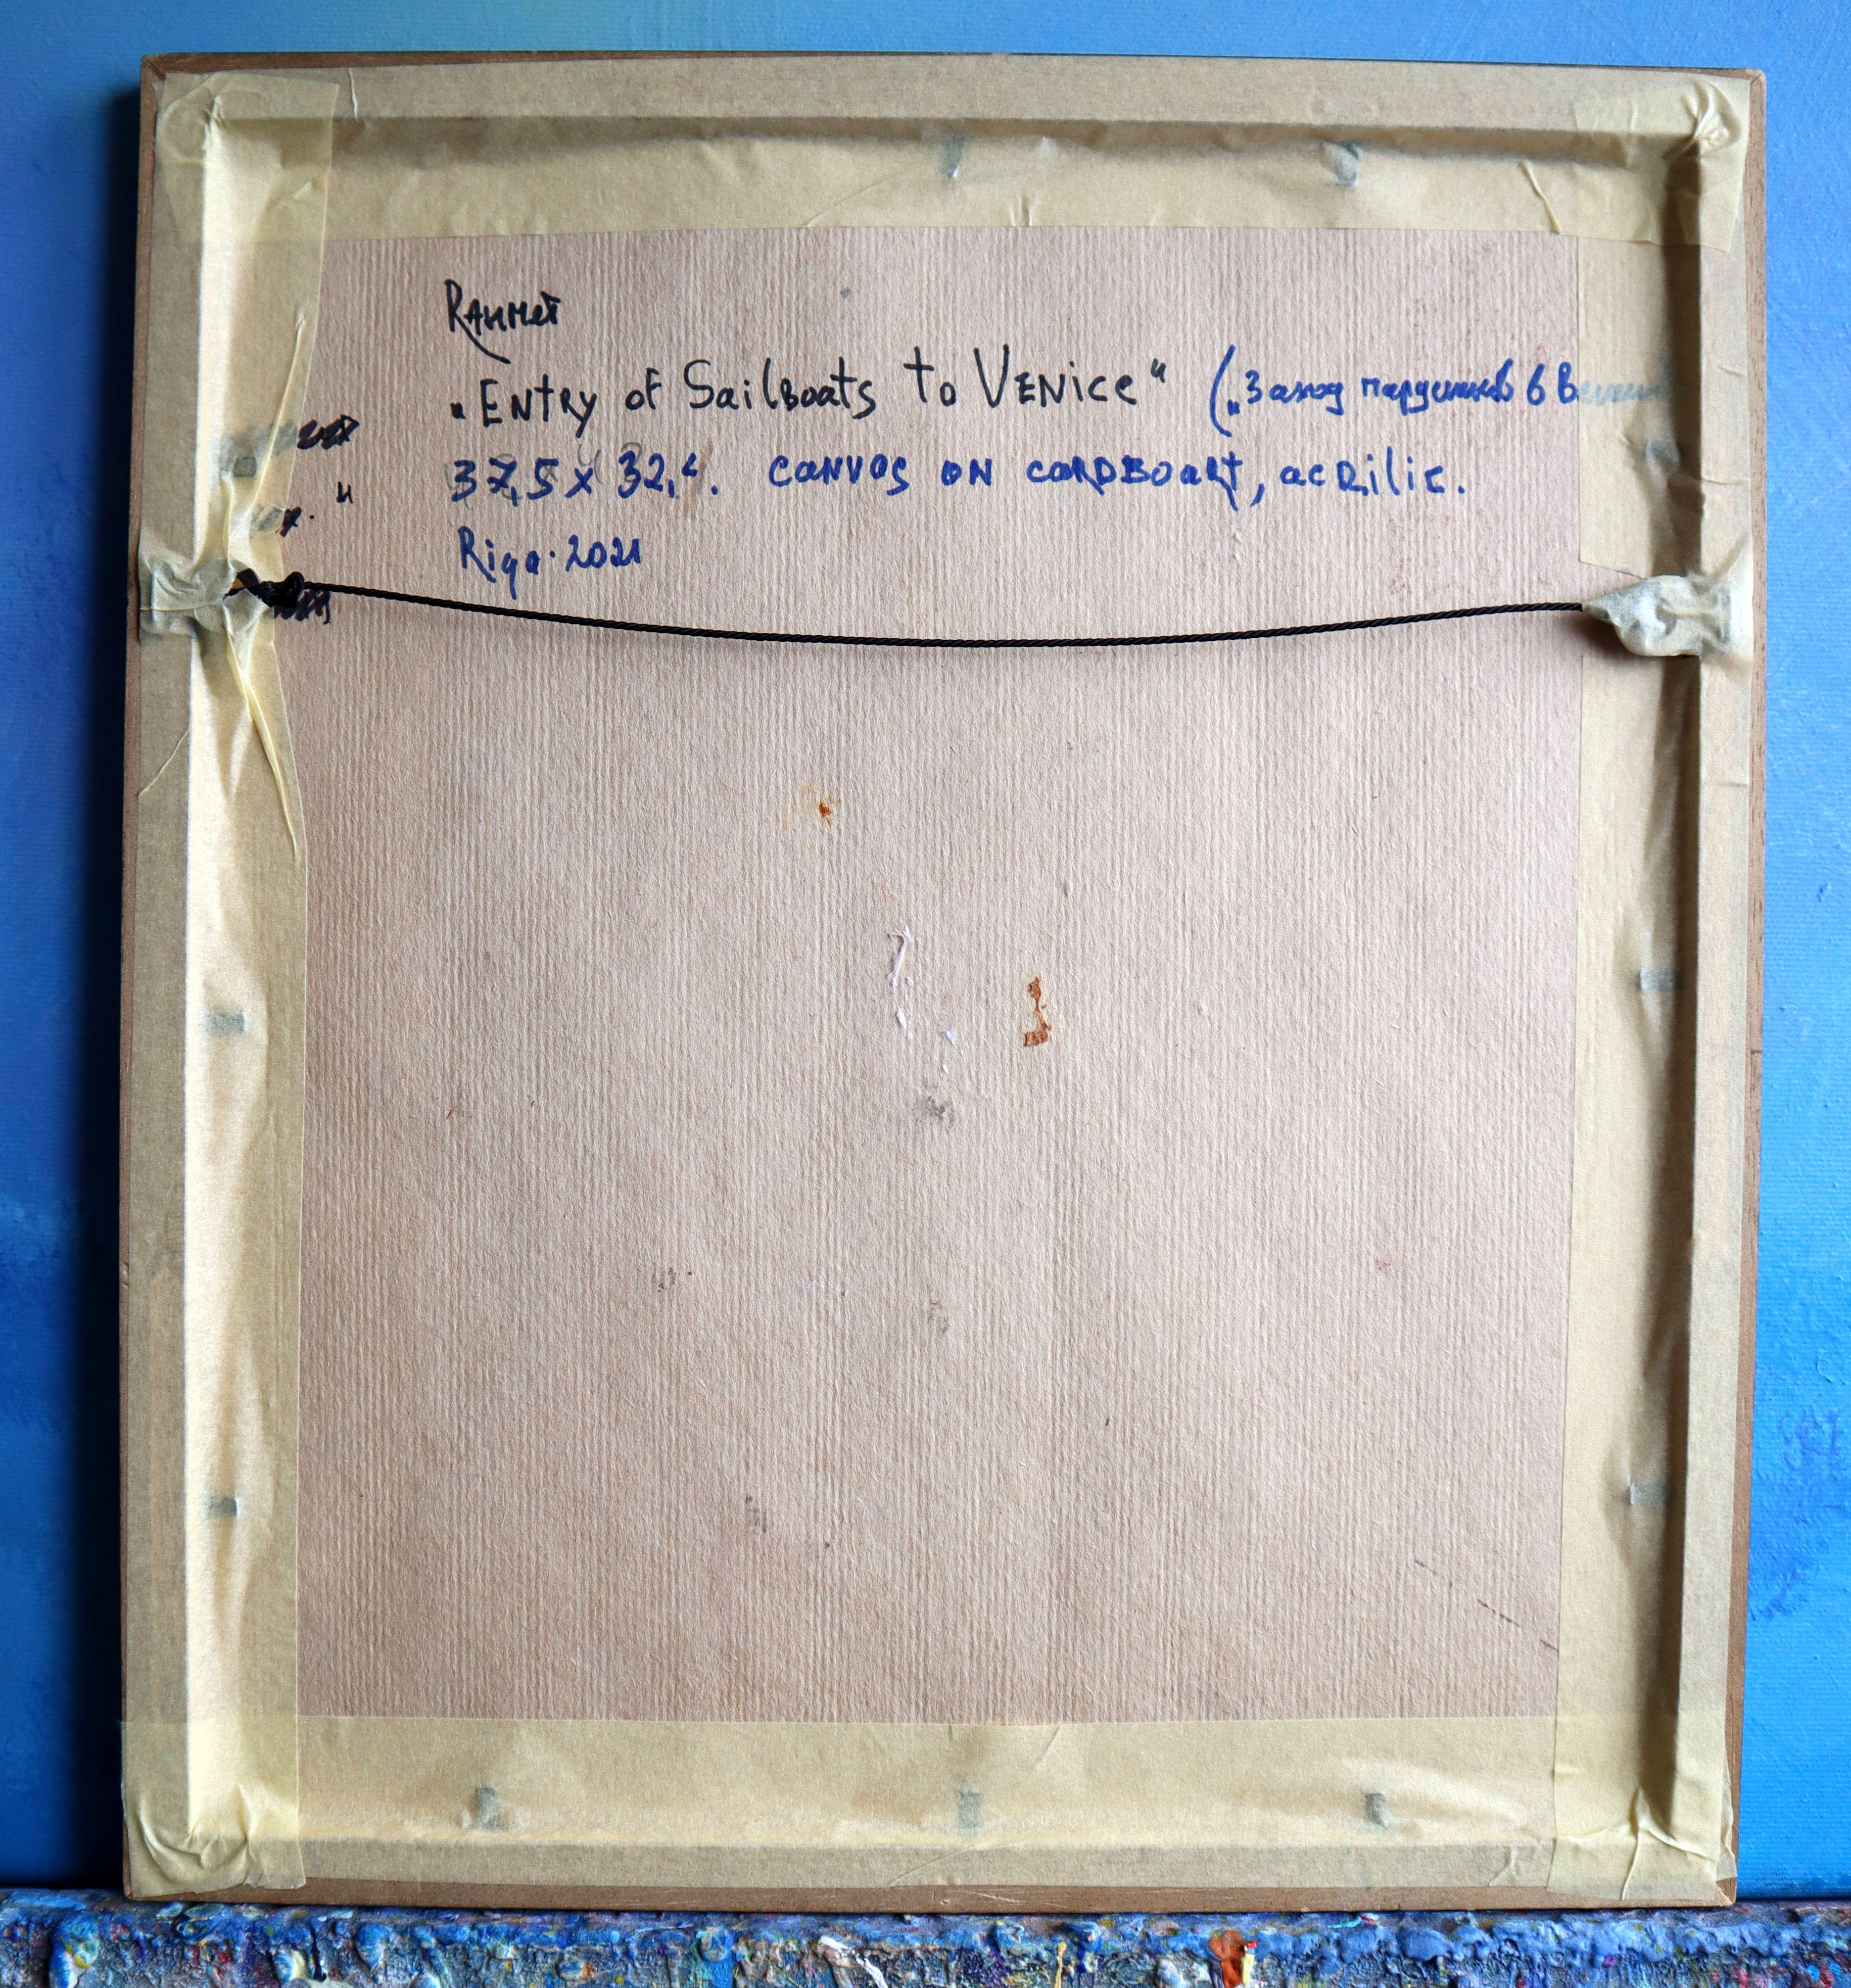 „Entry of SailBoats to VENice“ („Заход парусников в
37,5 x 32,4. canvas on cardboart, acrilic.
Riga. 2021